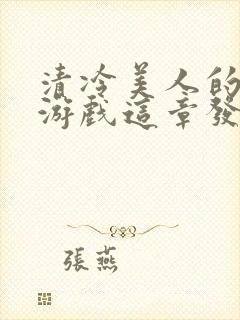 清冷美人的
游戲這章發
張燕